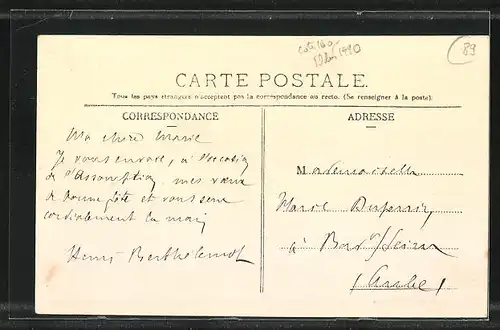 cote 160
1990
89
CARTE POSTALE.
Tous les pays étrangers n'acceptent pas la correspondance au recto. (Se renseigner à la poste).
CORRESPONDANCE
ADRESSE
Ma chère Marie
Je vous envoie, à l'occasion
de l'Assomption, mes vœux
de bonne fête et vous serre
cordialement la main
Henri
Mademoiselle
Marie
à Bar s/ Seine
(Aube)